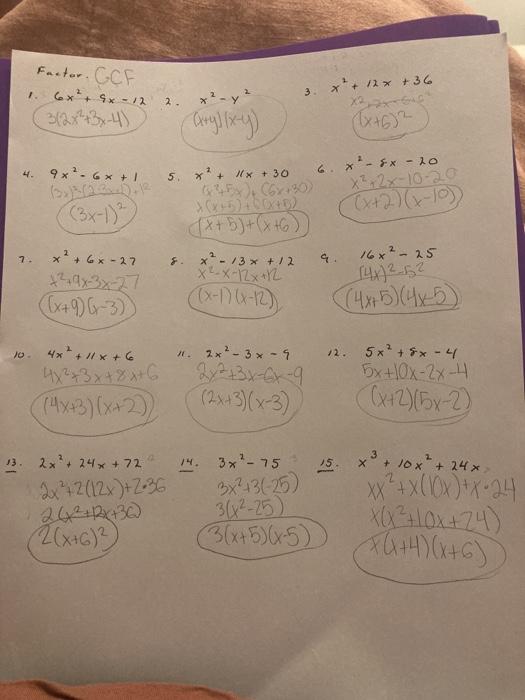 Factor: GCF
1. 6x² + 9x - 12
3(2x²+3x-4)
2. x² - y²
(x+y)(x-y)
3. x² + 12x + 36
(x+6)²
4. 9x² - 6x + 1
(3x-1)²
5. x² + 11x + 30
(x²+5x)+(6x+30)
x(x+5)+6(x+5)
(x+5)+(x+6)
6. x² - 8x - 20
x²+2x-10-20
(x+2)(x-10)
7. x² + 6x - 27
x²+9x-3x-27
(x+9)(x-3)
8. x² - 13x + 12
x²-x-12x+12
(x-1)(x-12)
9. 16x² - 25
(4x)²-5²
(4x+5)(4x-5)
10. 4x² + 11x + 6
4x²+3x+8x+6
(4x+3)(x+2)
11. 2x² - 3x - 9
2x²+3x-6x-9
(2x+3)(x-3)
12. 5x² + 8x - 4
5x+10x-2x-4
(x+2)(5x-2)
13. 2x² + 24x + 72
2x²+2(12x)+2·36
2(x²+12x+36)
2(x+6)²
14. 3x² - 75
3x²+3(-25)
3(x²-25)
3(x+5)(x-5)
15. x³ + 10x² + 24x
xx²+x(10x)+x·24
x(x²+10x+24)
x(x+4)(x+6)